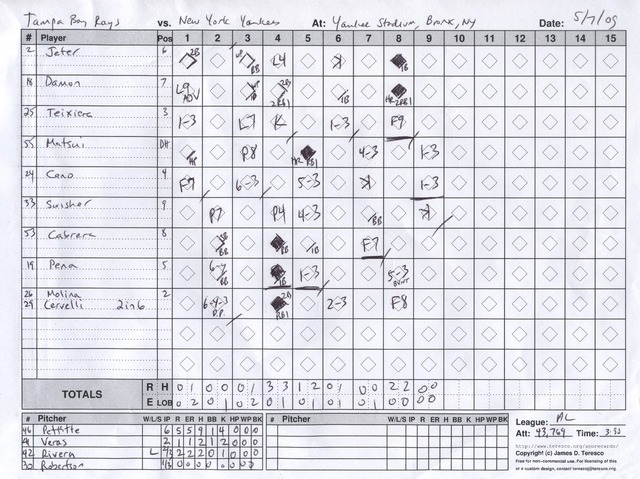 Tampa Bay Rays vs. New York Yankees At: Yankee Stadium, Bronx, NY Date: 5/7/09
# Player Pos 1 2 3 4 5 6 7 8 9 10 11 12 13 14 15
2 Jeter 6 2B BB L4 K 1B
18 Damon 7 L9 ADV 1B 2B 2RBI 1B HR 2RBI
25 Teixiera 3 1-3 L7 K 1-3 F9
55 Matsui DH HP P8 HR RBI 4-3 1-3
24 Cano 4 F7 6-3 5-3 K 1-3
33 Swisher 9 P7 P4 4-3 BB K
53 Cabrera 8 BB 1B F7
19 Pena 5 6-4 BB 1B 1-3 5-3 BUNT
26 Molina 2
29 Cervelli 2 in 6 6-4-3 D.P. 2B RBI 2-3 F8
TOTALS R H 0 1 0 0 0 1 3 3 1 2 0 1 0 0 2 2 0 0
E LOB 0 2 0 1 0 2 0 1 0 1 0 1 0 1 0 0 0 0
# Pitcher W/L/S IP R ER H BB K HP WP BK # Pitcher W/L/S IP R ER H BB K HP WP BK
46 Pettitte 6 5 5 9 1 4 0 0 0
41 Veras 2 1 1 2 1 2 0 0 0
42 Rivera L 2 2 2 0 1 0 0 0
30 Robertson 0 0 0 0 0 0 0 0
League: AL
Att: 43,769 Time: 3:50
http://www.teresco.org/scorecards/
Copyright (c) James D. Teresco
Free for non-commercial use. For licensing of this
or a custom design, contact terescoj@teresco.org